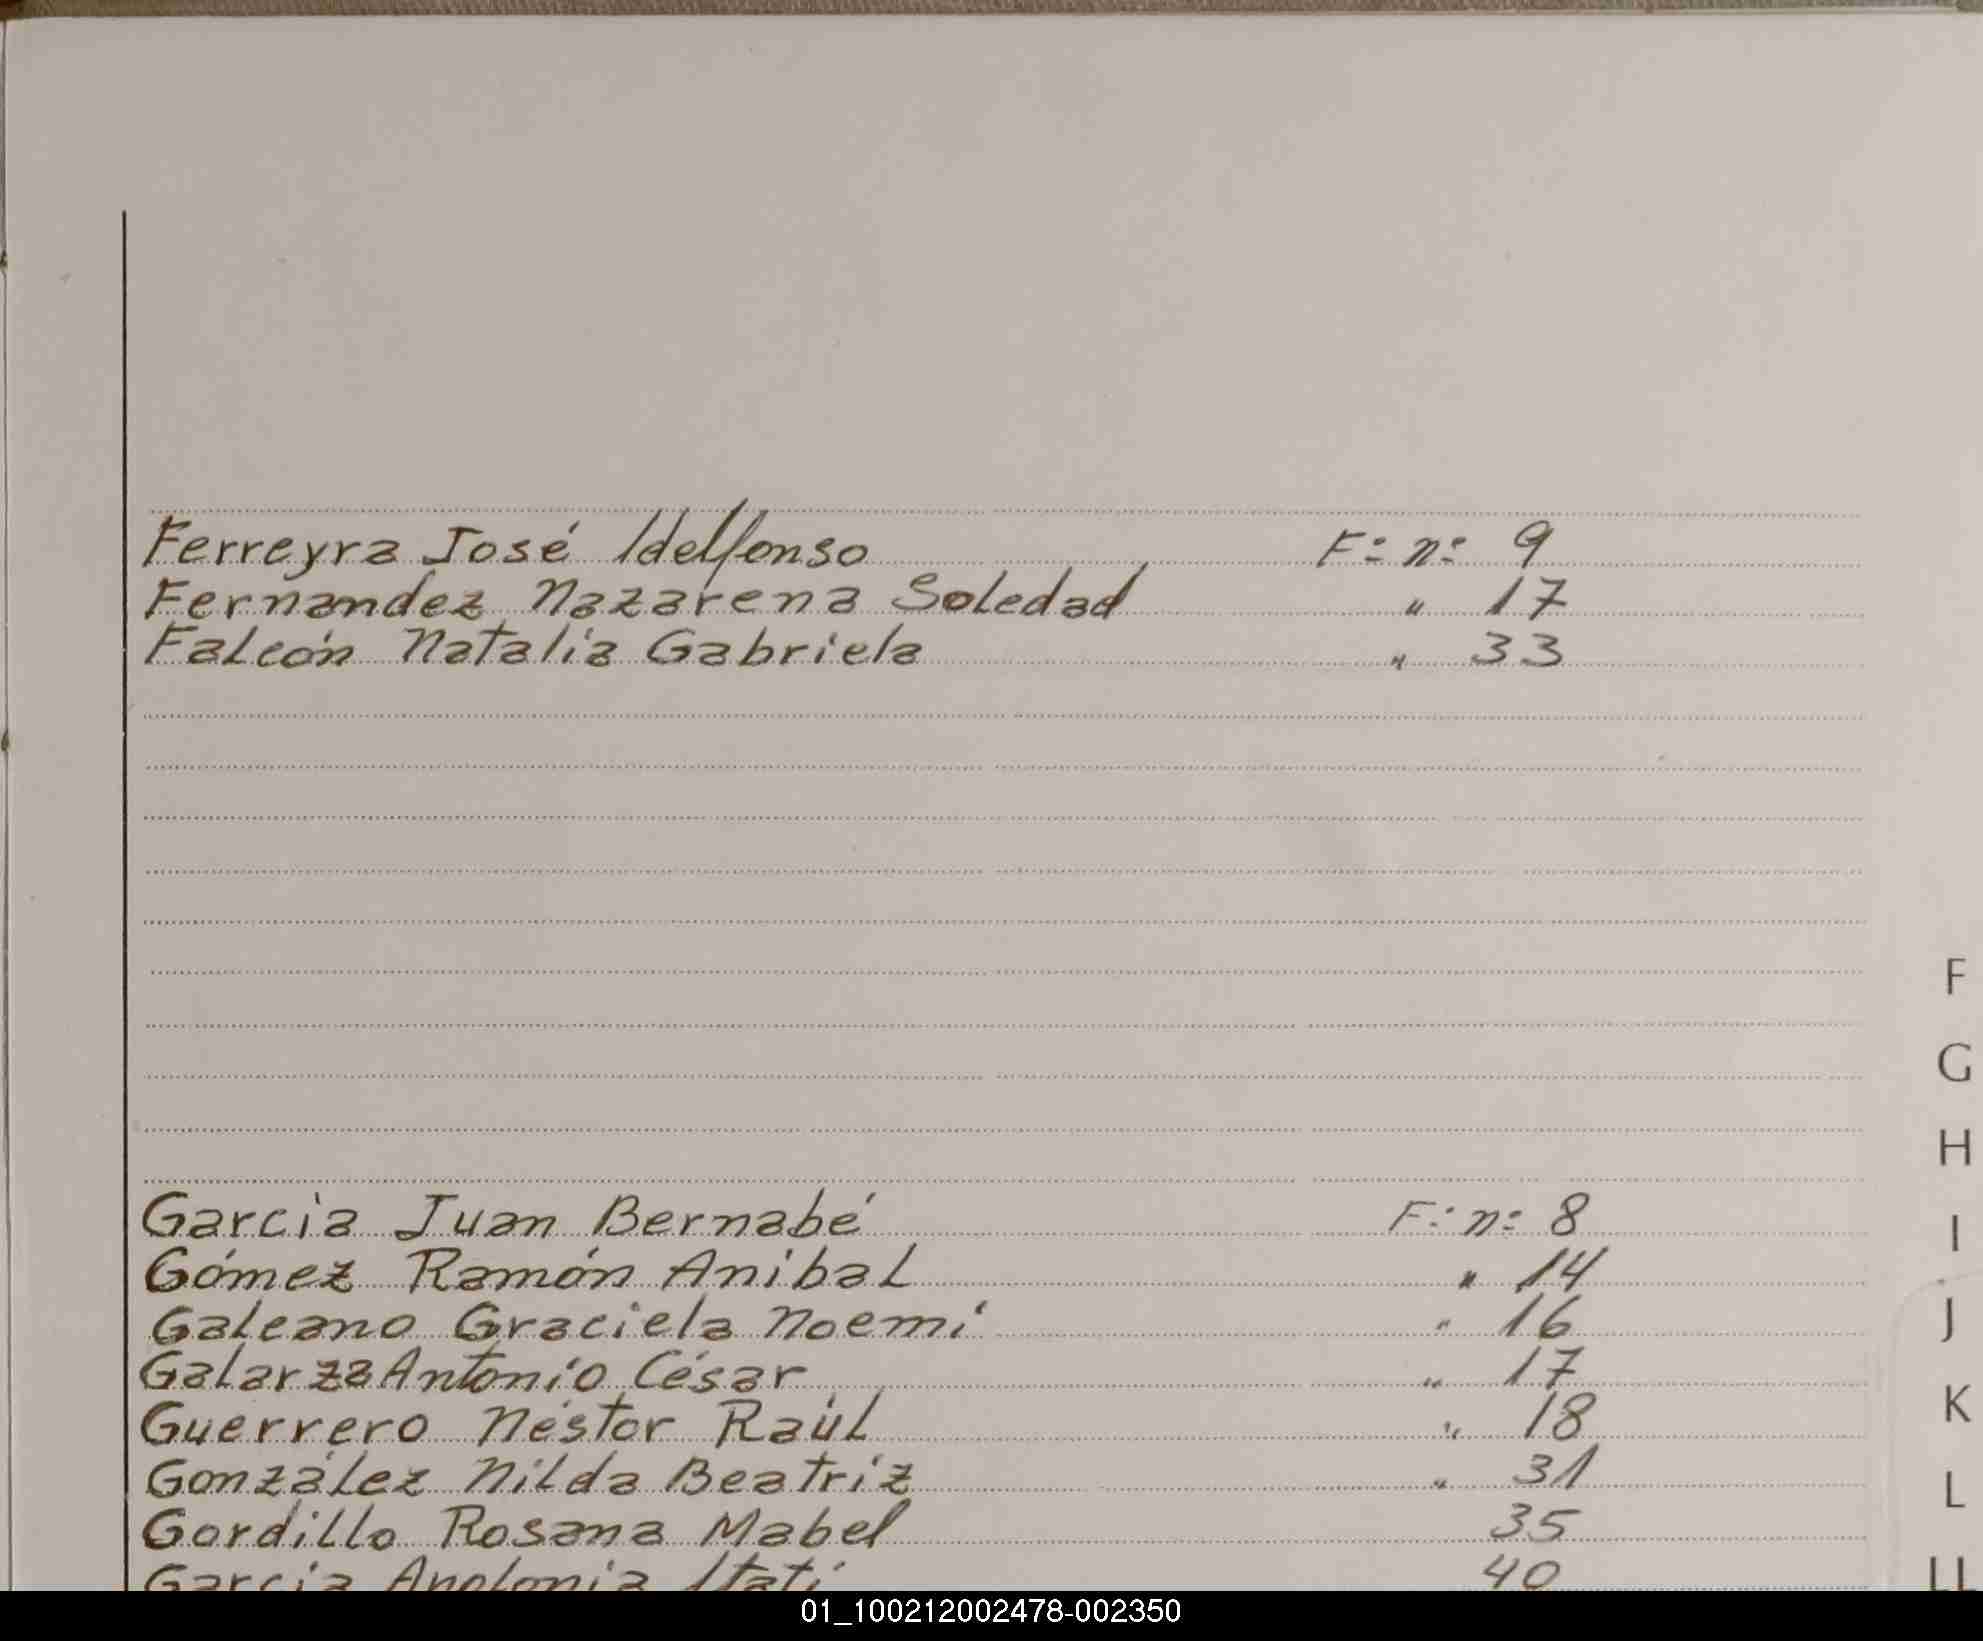 Ferreyra José Idelfonso F: n: 9
Fernandez Nazarena Soledad " 17
Falcón Natalia Gabriela " 33
F
G
H
Garcia Juan Bernabé F: n: 8
I
Gómez Ramón Anibal " 14
Galeano Graciela Noemí " 16
J
Galarza Antonio César " 17
K
Guerrero Néstor Raúl " 18
González Nilda Beatriz " 31
L
Gordillo Rosana Mabel 35
Garcia Apolonia Itatí 40
LL
01_100212002478-002350